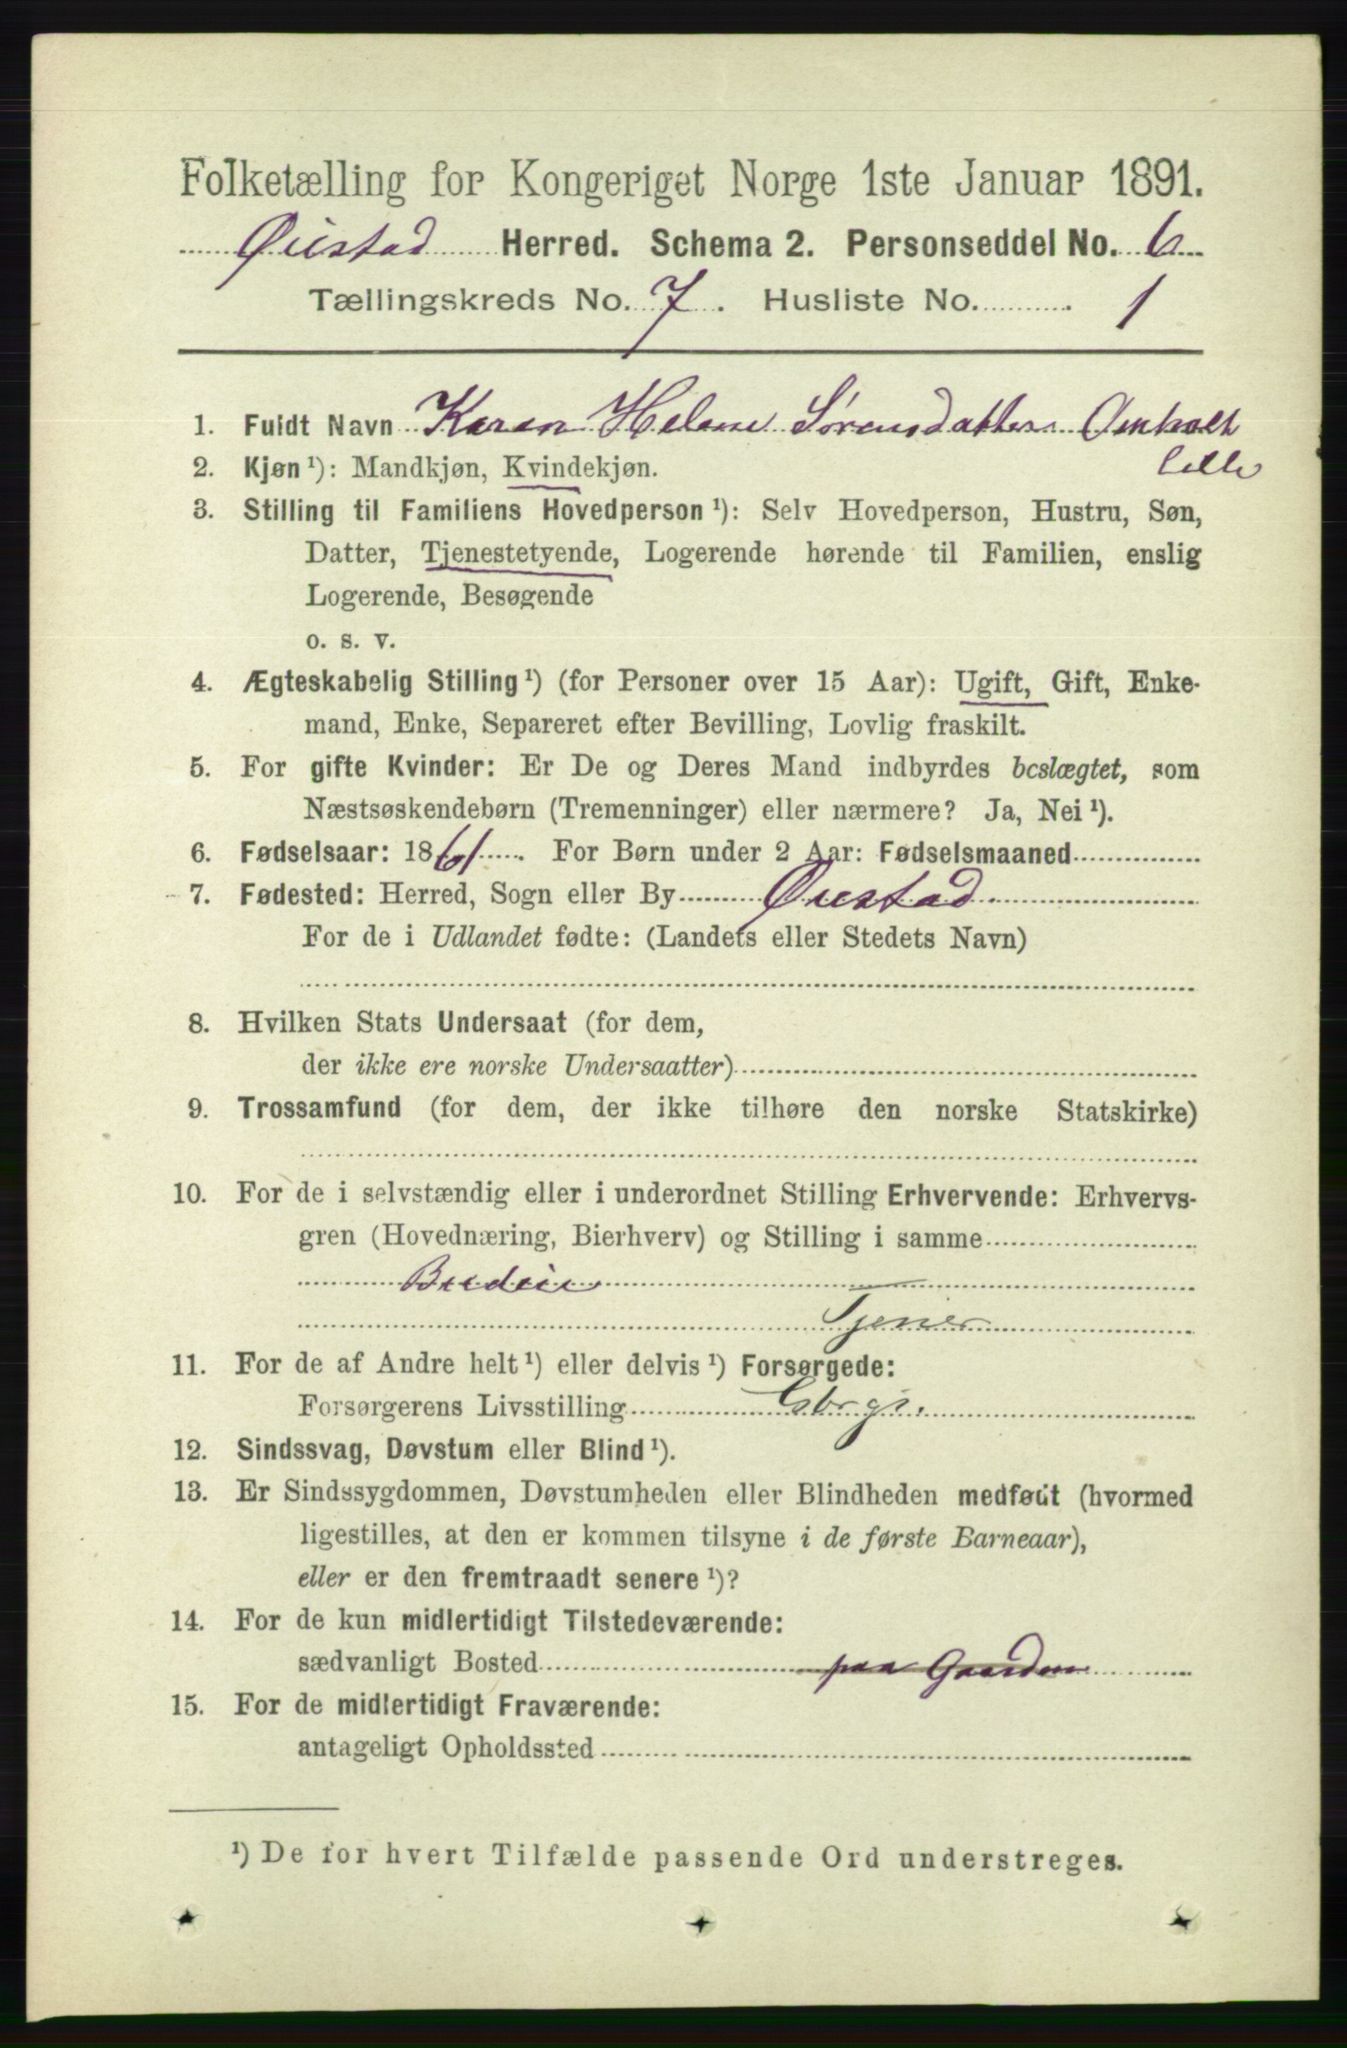 Folketælling for Kongeriget Norge 1ste Januar 1891.
Øiestad Herred. Schema 2. Personseddel No. 6
Tællingskreds No. 7. Husliste No. 1
1. Fuldt Navn Karen Helene Sørensdatter Omholt
lille
2. Kjøn ¹): Mandkjøn, Kvindekjøn.
3. Stilling til Familiens Hovedperson ¹): Selv Hovedperson, Hustru, Søn,
Datter, Tjenestetyende, Logerende hørende til Familien, enslig
Logerende, Besøgende
o. s. v.
4. Ægteskabelig Stilling ¹) (for Personer over 15 Aar): Ugift, Gift, Enke-
mand, Enke, Separeret efter Bevilling, Lovlig fraskilt.
5. For gifte Kvinder: Er De og Deres Mand indbyrdes beslægtet, som
Næstsøskendebørn (Tremenninger) eller nærmere? Ja, Nei ¹).
6. Fødselsaar: 1861. For Børn under 2 Aar: Fødselsmaaned
7. Fødested: Herred, Sogn eller By Øiestad
For de i Udlandet fødte: (Landets eller Stedets Navn)
8. Hvilken Stats Undersaat (for dem,
der ikke ere norske Undersaatter)
9. Trossamfund (for dem, der ikke tilhøre den norske Statskirke)
10. For de i selvstændig eller i underordnet Stilling Erhvervende: Erhvervs-
gren (Hovednæring, Bierhverv) og Stilling i samme
Budeie
Tjener
11. For de af Andre helt ¹) eller delvis ¹) Forsørgede:
Forsørgerens Livsstilling Gbrgr.
12. Sindssvag, Døvstum eller Blind ¹).
13. Er Sindssygdommen, Døvstumheden eller Blindheden medfødt (hvormed
ligestilles, at den er kommen tilsyne i de første Barneaar),
eller er den fremtraadt senere ¹)?
14. For de kun midlertidigt Tilstedeværende:
sædvanligt Bosted paa Gaarden
15. For de midlertidigt Fraværende:
antageligt Opholdssted
¹) De for hvert Tilfælde passende Ord understreges.